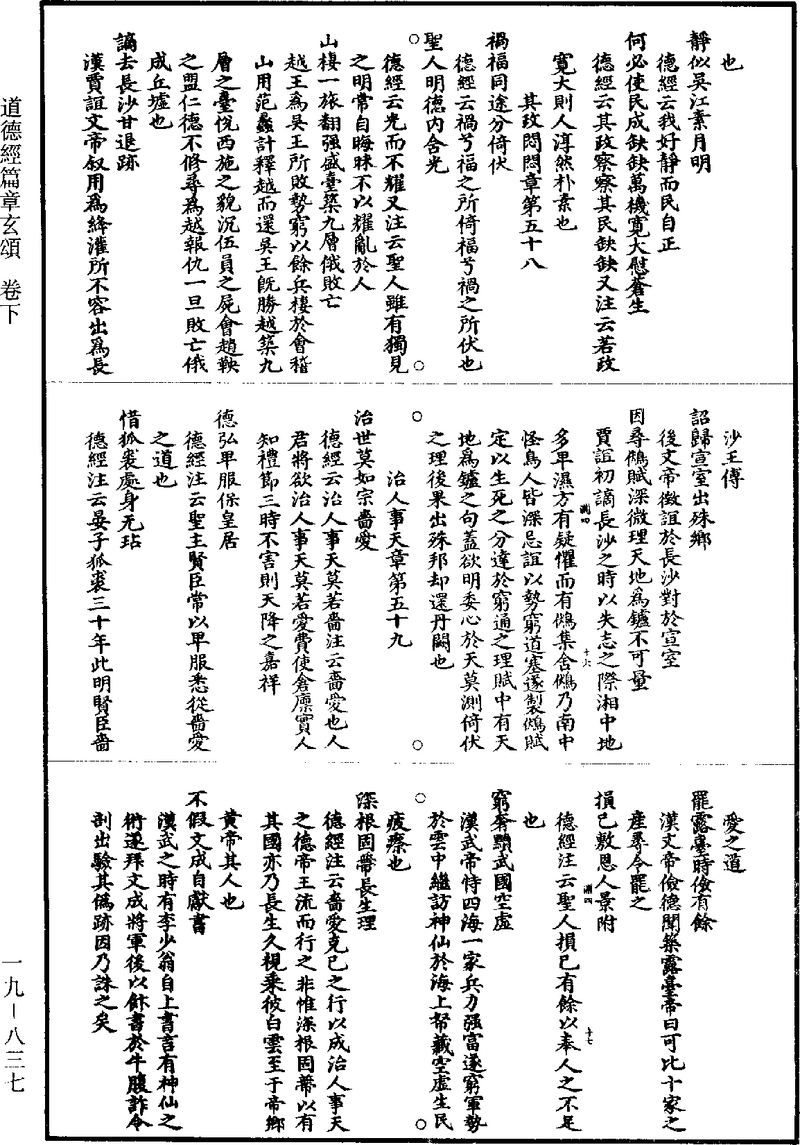 道德經篇章玄頌　卷下
一九－八三七
也
靜似吳江素月明
德經云我好靜而民自正
何必使民成缺缺萬機寬大慰蒼生
德經云其政察察其民缺缺又注云若政
寬大則人淳然朴素也
其政悶悶章第五十八
禍福同途分倚伏
德經云禍兮福之所倚福兮禍之所伏也
聖人明德內含光
○德經云光而不耀又注云聖人雖有獨見○
之明常自晦昧不以耀亂於人
山棲一旅翻强盛臺築九層俄敗亡
越王為吳王所敗勢窮以餘兵棲於會稽
山用范蠡計釋越而還吳王既勝越築九
層之臺悅西施之貌沉伍員之屍會趙鞅
之盟仁德不修尋為越報仇一旦敗亡俄
成丘墟也
謫去長沙甘退跡
漢賈誼文帝叙用為絳灌所不容出為長
沙王傅
詔歸宣室出殊鄉
後文帝徵誼於長沙對於宣室
因尋鵩賦深微理天地為鑪不可量
賈誼初謫長沙之時以失志之際湘中地
多卑濕方有疑懼而有鵩集舍鵩乃南中
淵四　十六
怪鳥人皆深忌誼以勢窮道塞遂製鵩賦
定以生死之分達於窮通之理賦中有天
地為鑪之句蓋欲明委心於天莫測倚伏
○之理後果出殊邦却還丹闕也○
治人事天章第五十九
治世莫如宗嗇愛
德經云治人事天莫若嗇注云嗇愛也人
君將欲治人事天莫若愛費使倉廪實人
知禮節三時不害則天降之嘉祥
德弘卑服保皇居
德經注云聖主賢臣常以卑服悉從嗇愛
之道也
惜狐裘處身无玷
德經注云晏子狐裘三十年此明賢臣嗇
愛之道
罷露臺時儉有餘
漢文帝儉德聞築露臺帝曰可比十家之
產尋令罷之
損己敷恩人景附
淵四　十七
德經注云聖人損己有餘以奉人之不足
也
窮奢黷武國空虛
漢武帝恃四海一家兵力强富遂窮軍勢
於雲中繼訪神仙於海上帑藏空虛生民
○疲瘵也○
深根固蔕長生理
德經注云嗇愛克己之行以成治人事天
之德帝王流而行之非惟深根固蔕以有
其國亦乃長生久視乘彼白雲至于帝鄉
黃帝其人也
不假文成自獻書
漢武之時有李少翁自上書言有神仙之
術遂拜文成將軍後以飰書於牛腹詐令
剖出驗其偽跡因乃誅之矣